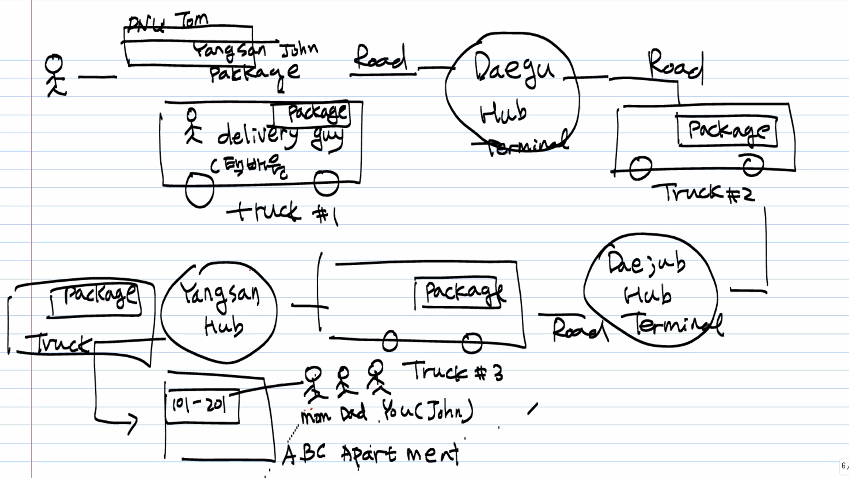 PNU Tom
Yangsan John
Package
Road
Daegu
Hub
Terminal
Road
Package
delivery guy
truck #1
Package
Truck #2
Package
Truck
Yangsan
Hub
Package
Truck #3
Road
Daejub
Hub
Terminal
101-201
mom Dad You(John)
ABC Apartment
6/